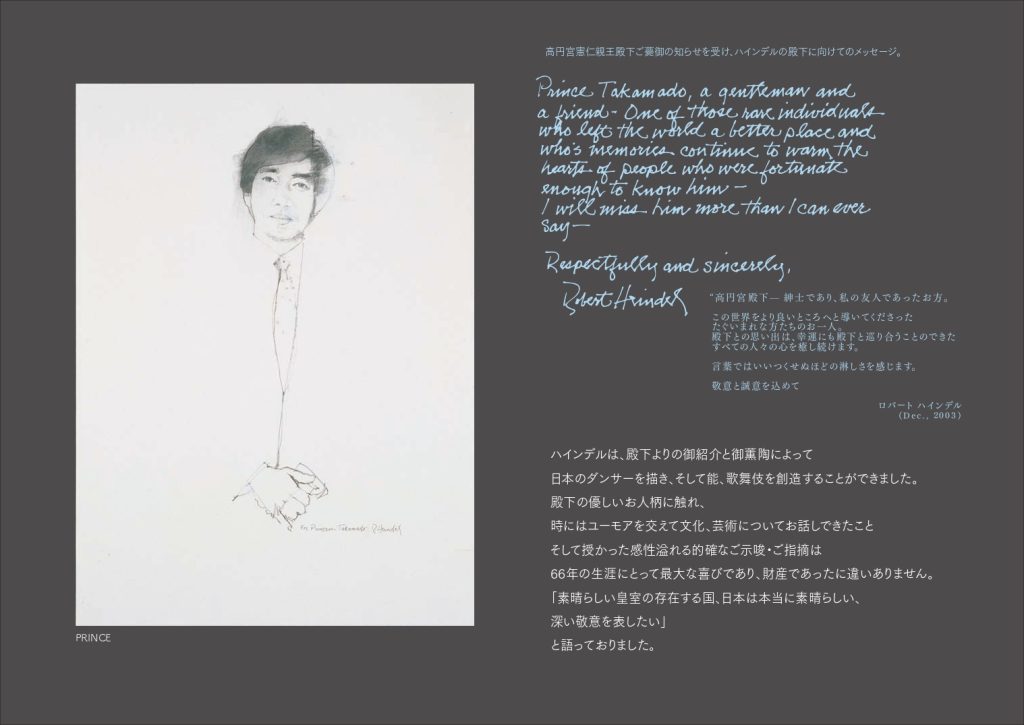 高円宮憲仁親王殿下ご薨御の知らせを受け、ハインデルの殿下に向けてのメッセージ。
Prince Takamado, a gentleman and
a friend - One of those rare individuals
who left the world a better place and
who's memories continue to warm the
hearts of people who were fortunate
enough to know him —
I will miss him more than I can ever
say —
Respectfully and sincerely,
Robert Heindel
“高円宮殿下― 紳士であり、私の友人であったお方。
この世界をより良いところへと導いてくださった
たぐいまれな方たちのお一人。
殿下との思い出は、幸運にも殿下と巡り合うことのできた
すべての人々の心を癒し続けます。
言葉ではいいつくせぬほどの淋しさを感じます。
敬意と誠意を込めて
ロバート ハインデル
(Dec., 2003)
ハインデルは、殿下よりの御紹介と御薫陶によって
日本のダンサーを描き、そして能、歌舞伎を創造することができました。
殿下の優しいお人柄に触れ、
時にはユーモアを交えて文化、芸術についてお話しできたこと
そして授かった感性溢れる的確なご示唆・ご指摘は
66年の生涯にとって最大な喜びであり、財産であったに違いありません。
「素晴らしい皇室の存在する国、日本は本当に素晴らしい、
深い敬意を表したい」
と語っておりました。
For Prince Takamado R Heindel
PRINCE